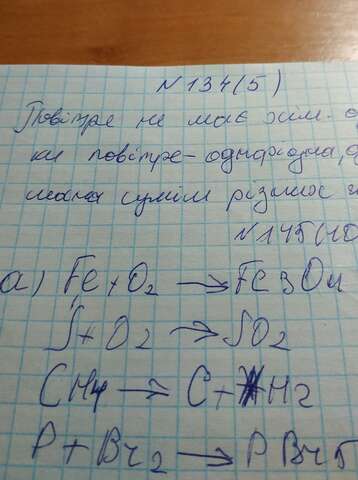 N134(5)
Повітря не має хім.
ки повітря - однорідна,
мана суміш різних
N145(10
а) Fe + O2 → Fe3O4
S + O2 → SO2
CH4 → C + H2
P + Br2 → PBr5